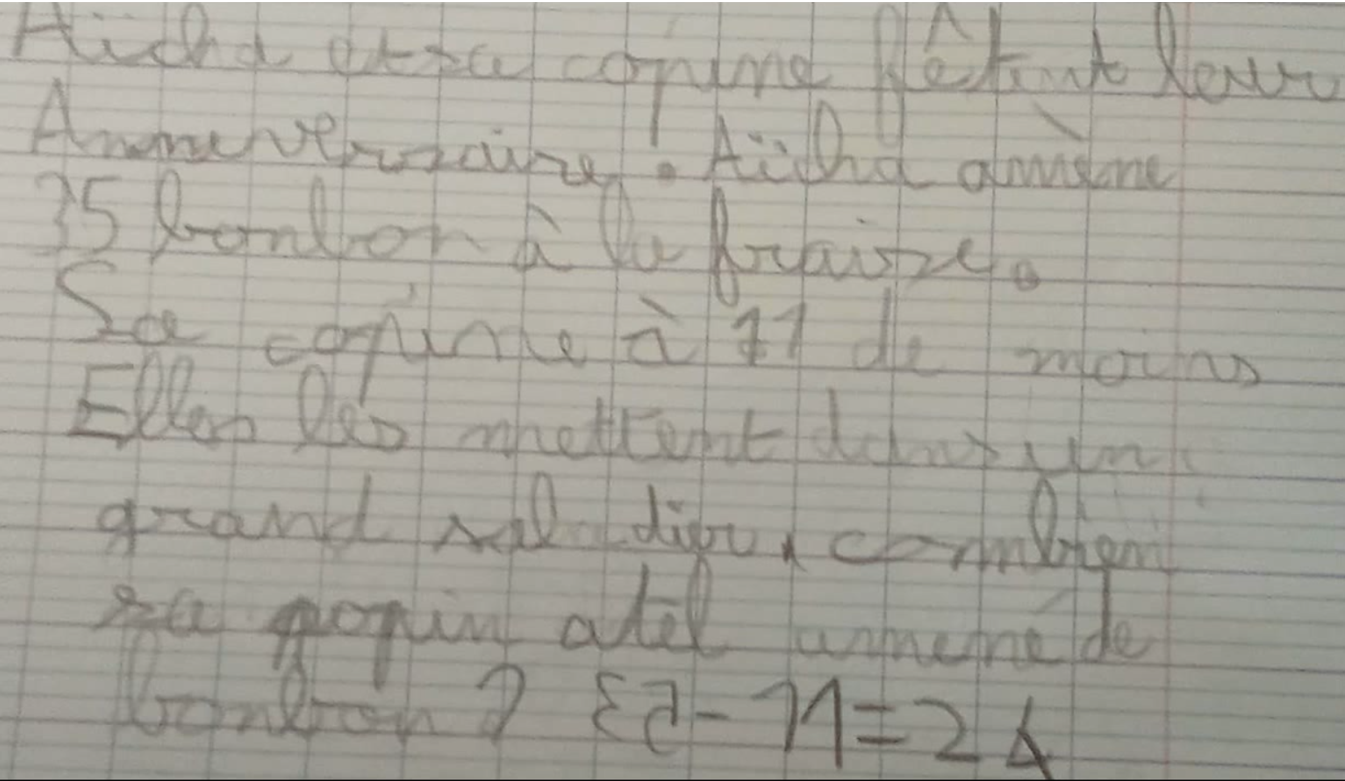 Aicha et sa copine fêtent leur
Anniversaire. Aicha amène
35 bonbon à la fraise.
Sa copine à 11 de moins
Elles les mettent dans un
grand saladier, combien
sa popin atel amené de
bonbon ? 35-11=24